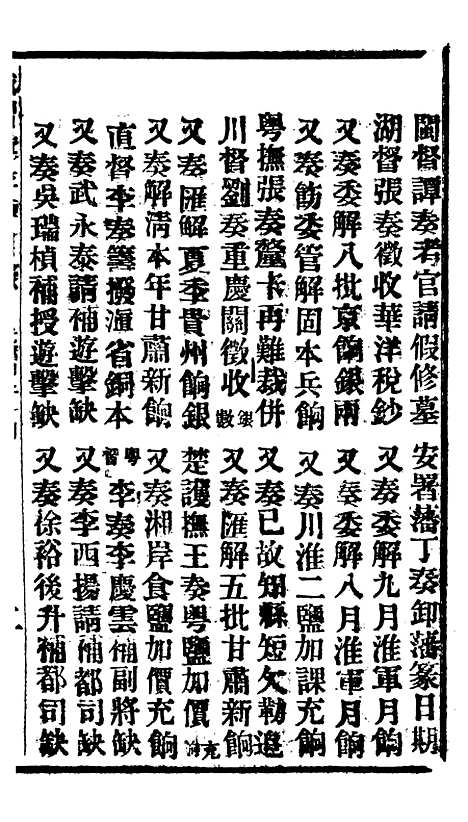 閩督譚奏考官請假修墓
安署藩丁奏卸藩篆日期
湖督張奏徵收華洋稅鈔
又奏委解九月淮軍月餉
又奏委解八批京餉銀兩
又奏委解八月淮軍月餉
又奏飭委管解固本兵餉
又奏川淮二鹽加課充餉
粵撫張奏釐卡再難裁併
又奏已故知縣短欠勒追
川督劉奏重慶關徵收銀數
又奏匯解五批甘肅新餉
又奏匯解夏季貴州餉銀
楚護撫王奏粵鹽加價充餉
又奏解清本年甘肅新餉
又奏湘岸食鹽加價充餉
直督李奏籌撥滬省銅本
粵督李奏李慶雲補副將缺
又奏武永泰請補遊擊缺
又奏李西揚請補都司缺
又奏吳瑞楨補授遊擊缺
又奏徐裕後升補都司缺